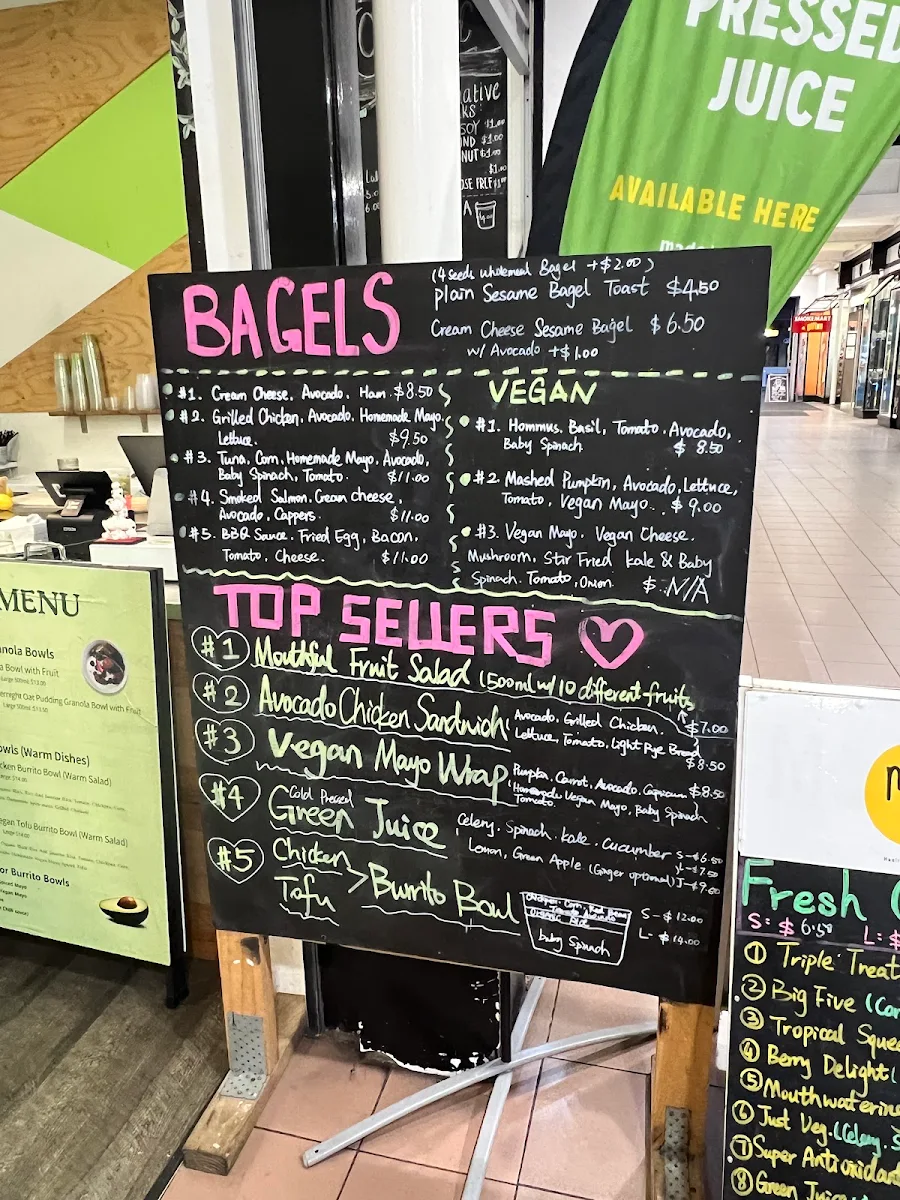 PRESSED
JUICE
AVAILABLE HERE
SOY $1.00
$1.00
NUT $1.00
SMOKEMART
BAGELS
(4 seeds wholemeal Bagel +$2.00)
Plain Sesame Bagel Toast $4.50
Cream Cheese Sesame Bagel $6.50
w/ Avocado +$1.00
#1. Cream Cheese, Avocado, Ham. $8.50
#2. Grilled Chicken, Avocado, Homemade Mayo,
Lettuce. $9.50
#3. Tuna, Corn, Homemade Mayo, Avocado,
Baby Spinach, Tomato. $11.00
#4. Smoked Salmon, Cream cheese,
Avocado, Cappers. $11.00
#5. BBQ Sauce, Fried Egg, Bacon,
Tomato, Cheese. $11.00
VEGAN
#1. Hommus. Basil, Tomato, Avocado,
Baby Spinach. $8.50
#2. Mashed Pumpkin, Avocado, Lettuce,
Tomato, Vegan Mayo. $9.00
#3. Vegan Mayo, Vegan Cheese.
Mushroom, Stir Fried Kale & Baby
Spinach. Tomato, Onion. $ N/A
TOP SELLERS
#1 Mouthful Fruit Salad (500ml w/ 10 different fruits
$7.00
#2 Avocado Chicken Sandwich Avocado, Grilled Chicken.
Lettuce, Tomato, Light Rye Bread
$8.50
#3 Vegan Mayo Wrap Pumpkin, Carrot, Avocado, Capsicum $8.50
Homemade Vegan Mayo, Baby Spinach.
Tomato.
#4 Cold Pressed
Green Juice Celery. Spinach. Kale. Cucumber S-$6.50
Lemon, Green Apple. (Ginger optional) J-$9.00
#5 Chicken
Tofu > Burrito Bowl
baby Spinach
S-$12.00
L-$14.00
MENU
Bowl with Fruit
Oat Pudding Granola Bowl with Fruit
(Warm Dishes)
Burrito Bowl (Warm Salad)
Tofu Burrito Bowl (Warm Salad)
Burrito Bowls
Fresh
S: $6.50 L: $
① Triple Treat
② Big Five
③ Tropical
④ Berry Delight
⑤ Mouthwatering
⑥ Just Veg. (Celery.
⑦ Super Antioxidant
⑧ Green Juice